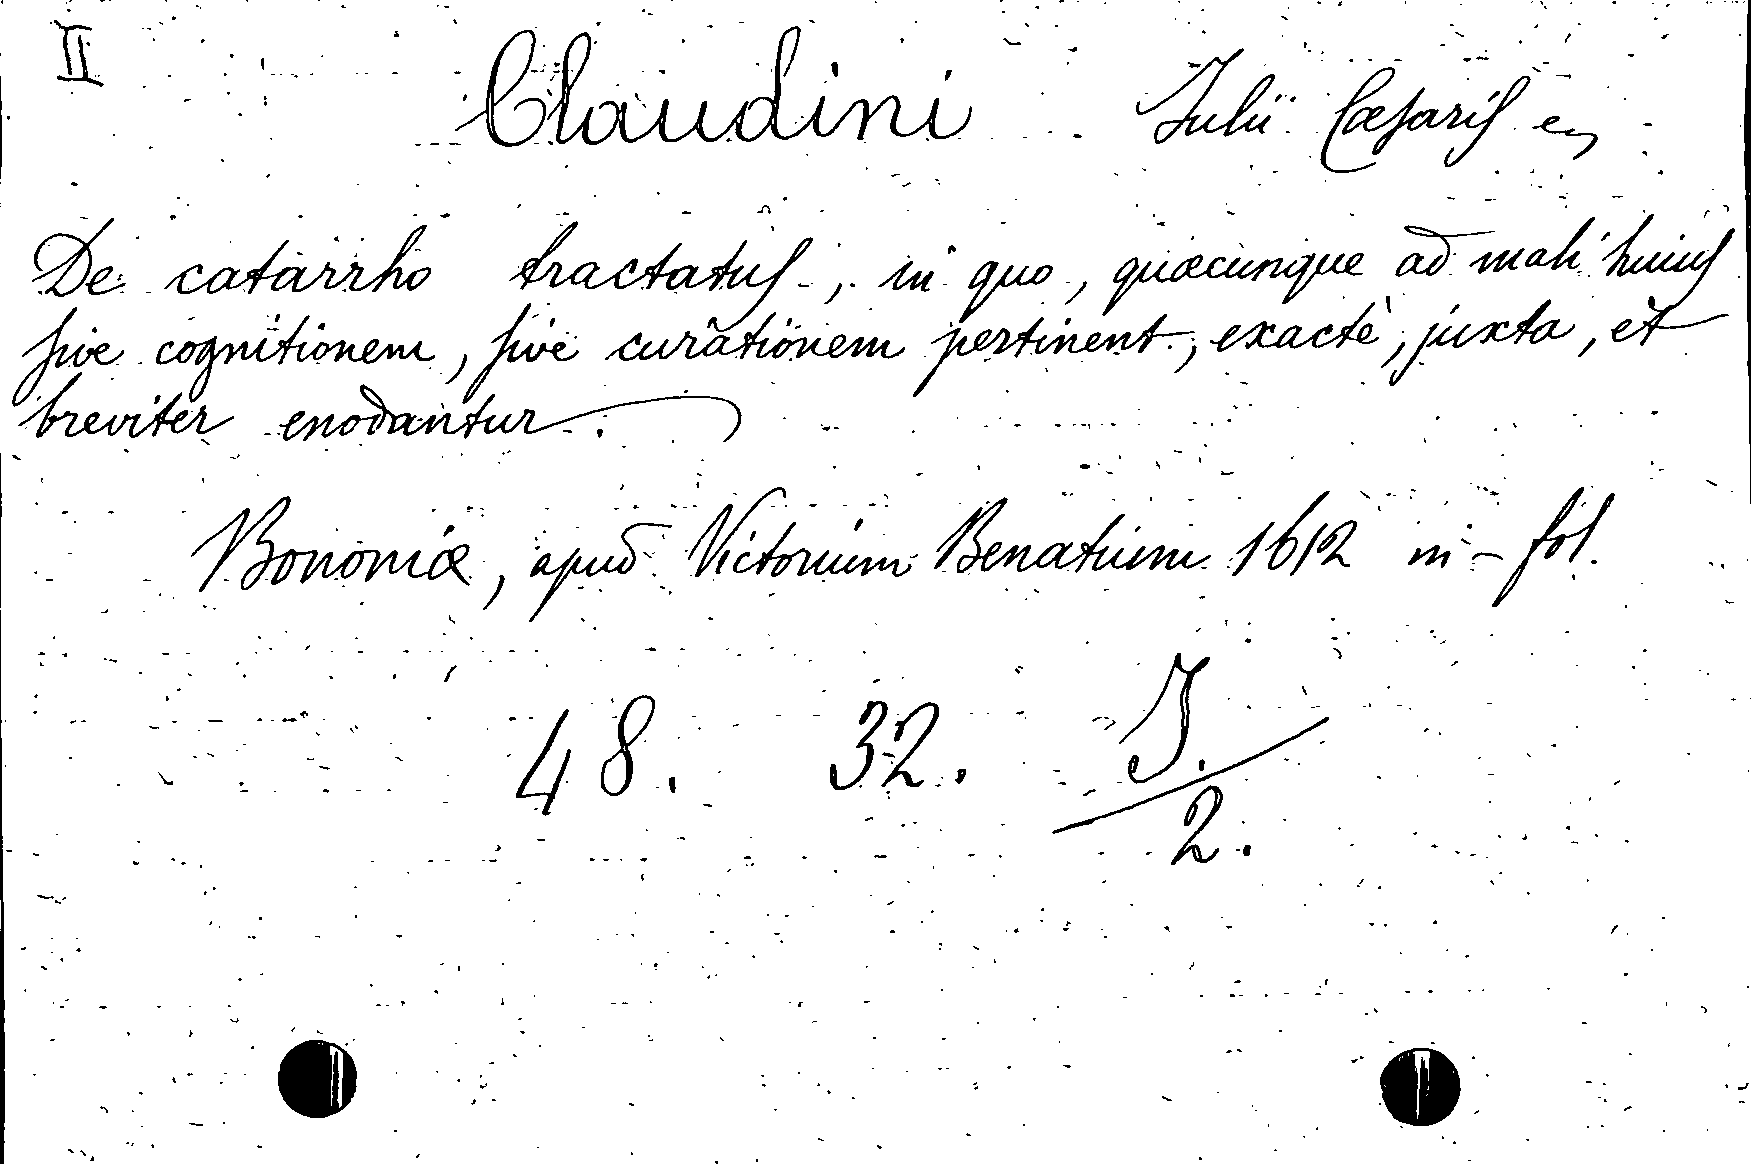 II Claudini Julii Cæsaris
De catarrho tractatus, in quo, quæcunque ad mali huius
sive cognitionem, sive curationem pertinent, exactè, juxta, et
breviter enodantur.
Bononiæ, apud Victorium Benatium 1612 in-fol.
48. 32. J./2.